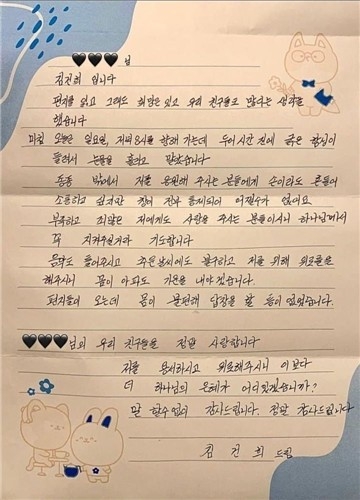 🖤🖤🖤님
김건희 입니다
편지를 읽고 그래도 희망은 있고 우리 친구들도 많다는 생각을
했습니다
마침 오늘은 일요일, 저녁 8시를 향해 가는데 두어시간 전에 굵은 함성이
들려서 눈물을 흘리고 말았습니다
종종 밖에서 저를 응원해 주시는 분들에게 손이라도 흔들어
소통하고 싶지만 창이 전부 통제되어 어쩔수가 없어요
부족하고 죄많은 저에게도 사랑을 주시는 분들이시니 하나님께서
꼭 지켜주실거라 기도합니다
음악도 틀어주시고 추운날씨에도 불구하고 저를 위해 위로를
해주시니 몸이 아파도 기운을 내야겠습니다.
편지들이 오는데 몸이 불편해 답장을 할 틈이 없었습니다.
🖤🖤🖤님의 우리 친구들을 정말 사랑합니다
저를 용서하시고 위로해주시니 이보다
더 하나님의 은혜가 어디있겠습니까?
말 할수없이 감사드립니다. 정말 감사드립니다
김건희 드림